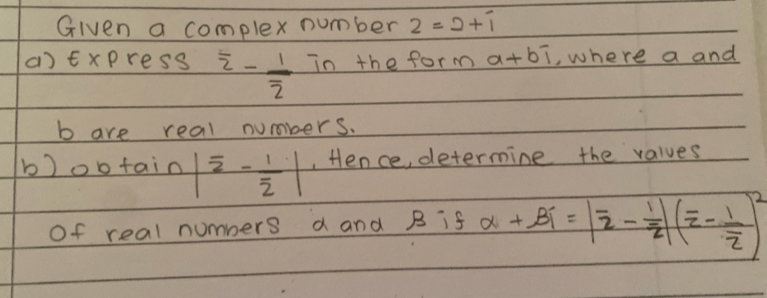 Given a complex number z = 2+i
a) Express z̄ - 1/z̄ in the form a+bi, where a and
b are real numbers.
b) obtain |z̄ - 1/z̄|. Hence, determine the values
of real numbers α and β if α + βi = |z̄ - 1/z̄|(z̄ - 1/z̄)²